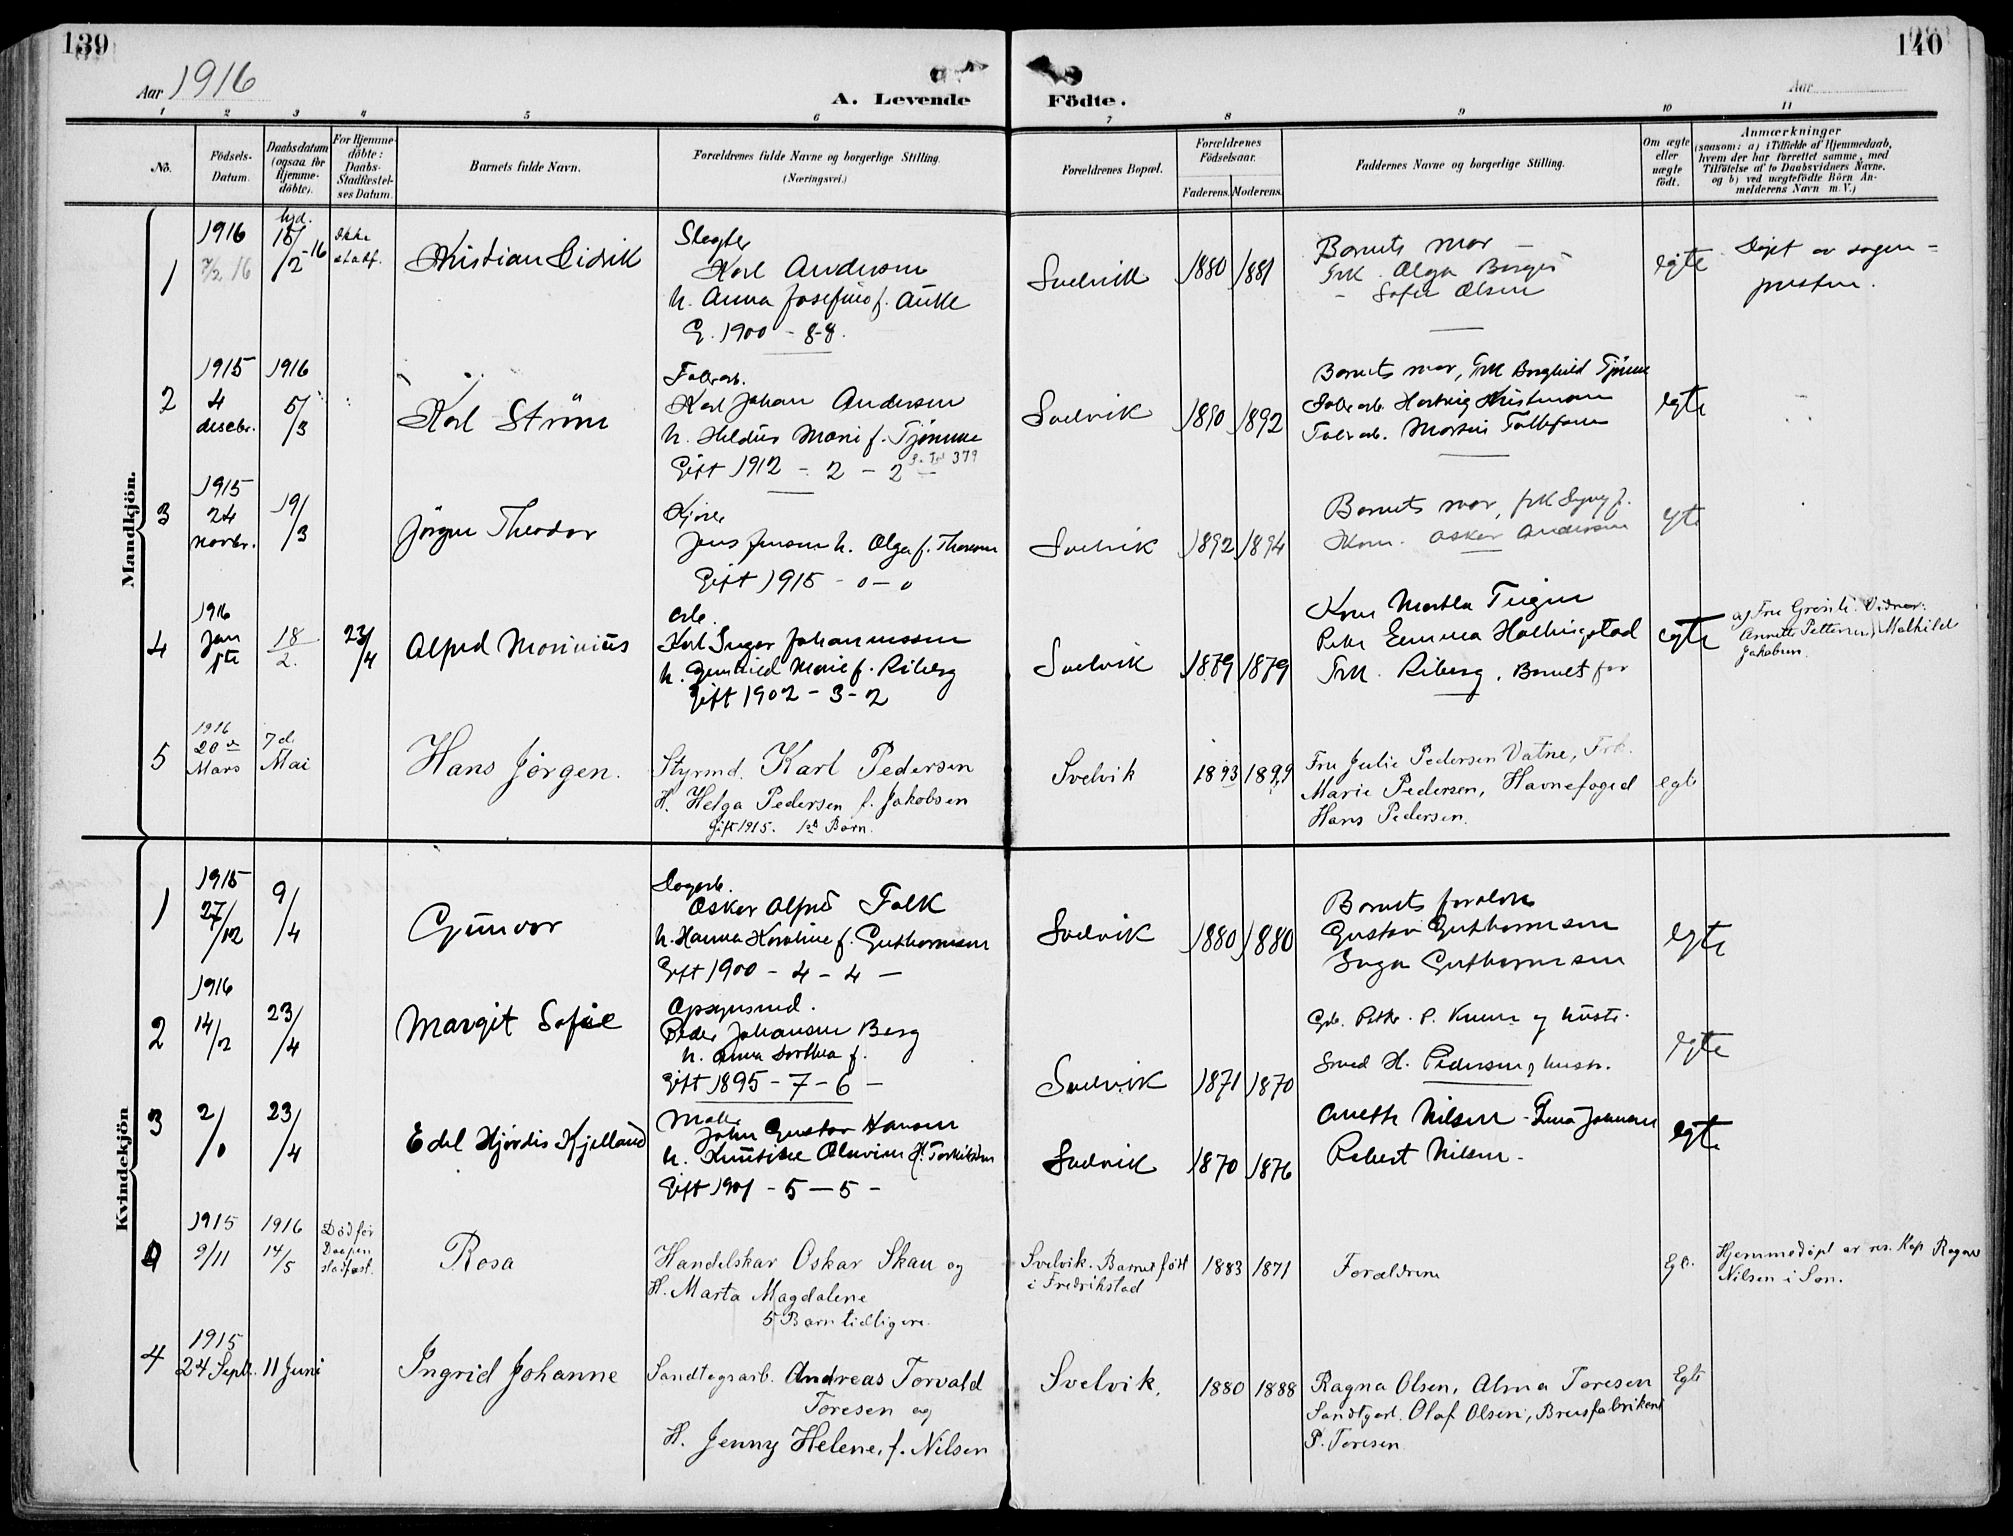 139
140
Aar 1916
Aar
A. Levende Födte.
1 2 3 4 5 6 7 8 9 10 11
No.
Födsels-Datum.
Daabsdatum (ogsaa for Hjemmedöbte).
For Hjemmedöbte: Daabs-Stadfæstelses Datum.
Barnets fulde Navn.
Forældrenes fulde Navne og borgerlige Stilling.
(Næringsvei.)
Forældrenes Bopæl.
Forældrenes Födselsaar.
Faderens. Moderens.
Faddernes Navne og borgerlige Stilling.
Om ægte eller uægte födt.
Anmærkninger
(saasom: a) i Tilfælde af Hjemmedaab,
hvem der har forrettet samme, med
Tilföielse af to Daabsvidners Navne.
og b) ved uægtefödte Börn An-
melderens Navn m. V.)
Mandkjön.
1
1916
7/2 16
hjd.
15/2-16
Ikke
stadf.
Kristian Didrik
Karl Andersen
h. Anna Josefine f.
G. 1900 - 8-8.
Svelvik
1880
1881
Barnets mor
Frk. Olga
Sofie Olsen
egte
Døpt av sogne-
presten.
2
1915
4
desebr.
1916
5/3
Karl Strøm
Fabrarb.
Karl Johan Andersen
h. Marie f. Tjømme
Gift 1912 - 2 - 2
379
Svelvik
1890
1892
Barnets mor, Frk Borghild Tjømme
Fabrarb.
Fabrarb.
egte
3
1915
24
novbr.
19/3
Jørgen Theodor
Jens Jensen h. Olga f.
Gift 1915 - 0 - 0
Svelvik
1892
1894
Barnets mor, frk
Oskar Andersen
egte
4
1916
Jan
1ste
18/2.
23/4
Alfred
Arb.
Karl Inger Johannessen
h. Gunhild Marie f. Riberg
Gift 1902 - 3 - 2
Svelvik
1879
1879
Kone Martha Teigen
Emma
Frk. Riberg, Barnets far
egte
af Fru Vidner:
Annette Pettersen, Mathilde
Jakobsen
5
1916
20de
Mars
7d.
Mai
Hans Jörgen.
Styrmd. Karl Pedersen
H. Helga Pedersen f. Jakobsen
Gift 1915. 1st Barn.
Svelvik
1893
1899
Fru Julie Pedersen Vatne, Frk.
Marie Pedersen, Havnefoged
Hans Pedersen.
egte
Kvindekjön
1
1915
27/12
9/4
Gunvor
Dagarb.
Oskar Alfred Falk
h. Hanna Karoline f. Guthormsen
Gift 1900 - 4 - 4 -
Svelvik
1880
1880
Barnets forældre
Gustav Guthormsen
Inga Guthormsen
egte
2
1916
14/2
23/4
Margit Sofie
Opsynsmd.
Peder Johansen Berg
h. Anna Dorthea f.
Gift 1895 - 7 - 6 -
Svelvik
1871
1870
P. og hustr.
Smed H. Pedersen og hustr.
egte
3
2/
23/4
Edel Hjørdis Kjelland
John Gustav Hansen
h.
Gift 1901 - 5 - 5 -
Svelvik
1870
1876
Anette Nilsen -
Robert Nilsen -
egte
4
1915
9/11
1916
14/5
Död før
Daapen
stadfæst.
Rosa
Handelskar Oskar Skau og
H. Marta Magdalene
5 Barn tidligere.
Svelvik. Barnet født
i Fredrikstad
1883
1871
Forældrene
Egte.
Hjemmedøpt av res. Kap. Ragnv
Nilsen i Son.
4
1915
24 Sept.
11 Juni
Ingrid Johanne
Sandtagsarb. Andreas Torvald
Toresen og
H. Jenny Helene, f. Nilsen
Svelvik.
1880
1888
Ragna Olsen, Alma Toresen
Olaf Olsen, Brusfabrikent
P. Toresen
Egte